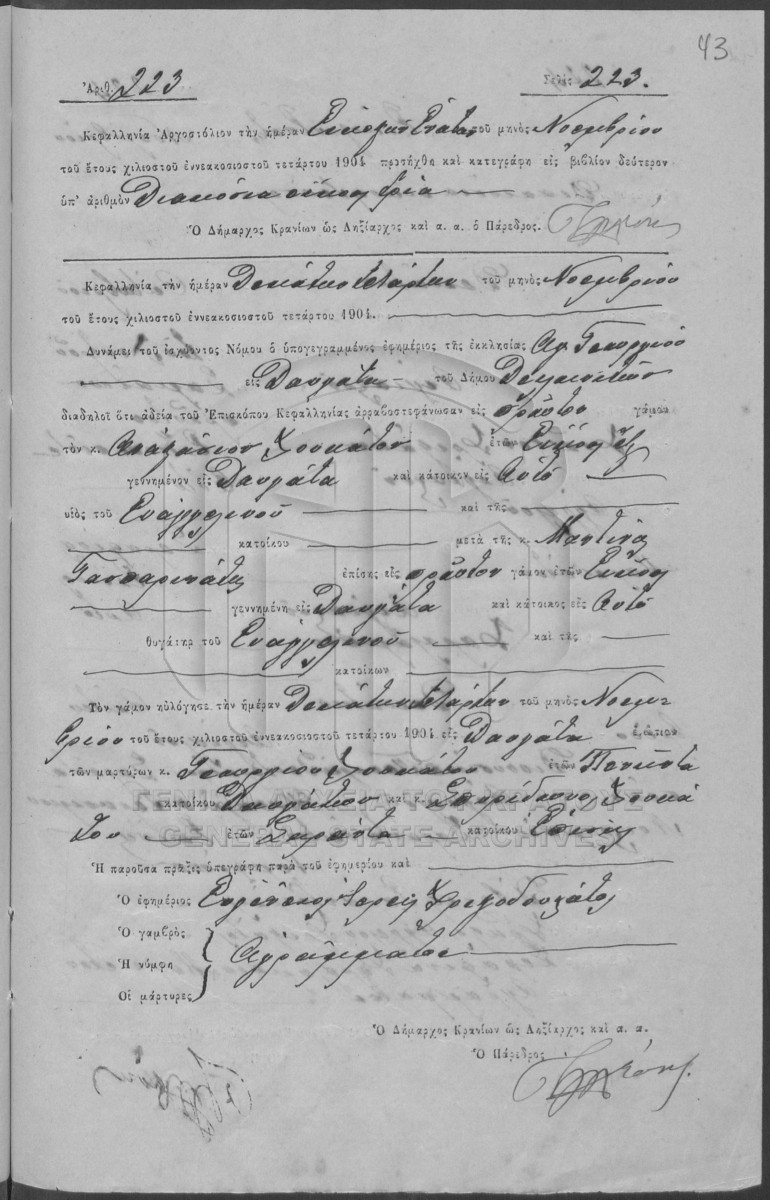 43
Ἀριθ. 223 Σελὶς 223.
Κεφαλληνία Ἀργοστόλιον τὴν ἡμέραν Εικοστήν Ενάτην τοῦ μηνὸς Νοεμβρίου
τοῦ ἔτους χιλιοστοῦ ἐννεακοσιοστοῦ τετάρτου 1904 προσήχθη καὶ κατεγράφη εἰς βιβλίον δεύτερον
ὑπ' ἀριθμὸν Διακόσια είκοσι τρία
Ὁ Δήμαρχος Κρανίων ὡς Ληξίαρχος καὶ α. α. ὁ Πάρεδρος.
Κεφαλληνία τὴν ἡμέραν Δεκάτην τετάρτην τοῦ μηνὸς Νοεμβρίου
τοῦ ἔτους χιλιοστοῦ ἐννεακοσιοστοῦ τετάρτου 1904.
Δυνάμει τοῦ ἰσχύοντος Νόμου ὁ ὑπογεγραμμένος ἐφημέριος τῆς ἐκκλησίας Αγ. Γεωργίου
εἰς Δαυγάτα τοῦ Δήμου
διαδηλοῖ ὅτι ἀδείᾳ τοῦ Ἐπισκόπου Κεφαλληνίας ἀρραβοστεφάνωσαν εἰς πρῶτον γάμον
τὸν κ. Αναστάσιον ἐτῶν Είκοσι έξ
γεννημένον εἰς Δαυγάτα καὶ κάτοικον εἰς Αυτό
υἱὸς τοῦ Ευαγγελινού καὶ τῆς
κατοίκου μετὰ τῆς κ. Μαντίνας
Γασπαρινάτου ἐπίσης εἰς πρῶτον γάμον ἐτῶν Είκοσι
γεννημένη εἰς Δαυγάτα καὶ κάτοικος εἰς Αυτό
θυγάτηρ τοῦ Ευαγγελινού καὶ τῆς
κατοίκων
Τὸν γάμον ηὐλόγησε τὴν ἡμέραν Δεκάτην τετάρτην τοῦ μηνὸς Νοεμ-
βρίου τοῦ ἔτους χιλιοστοῦ ἐννεακοσιοστοῦ τετάρτου 1904 εἰς Δαυγάτα ἐνώπιον
τῶν μαρτύρων κ. Γεωργίου ἐτῶν Πενήντα
κατοίκου Δαυγάτων καὶ κ. Σπυρίδωνος
ἐτῶν Σαράντα κατοίκου Επίσης
Ἡ παροῦσα πρᾶξις ὑπεγράφη παρὰ τοῦ ἐφημερίου καὶ
Ὁ ἐφημέριος Ευγένειος Ιερεύς
Ὁ γαμβρὸς
Ἡ νύμφη
Οἱ μάρτυρες
Αγράμματοι
Ὁ Δήμαρχος Κρανίων ὡς Ληξίαρχος καὶ α. α.
Ὁ Πάρεδρος
ΓΕΝΙΚΑ ΑΡΧΕΙΑ ΤΟΥ ΚΡΑΤΟΥΣ
GENERAL STATE ARCHIVES